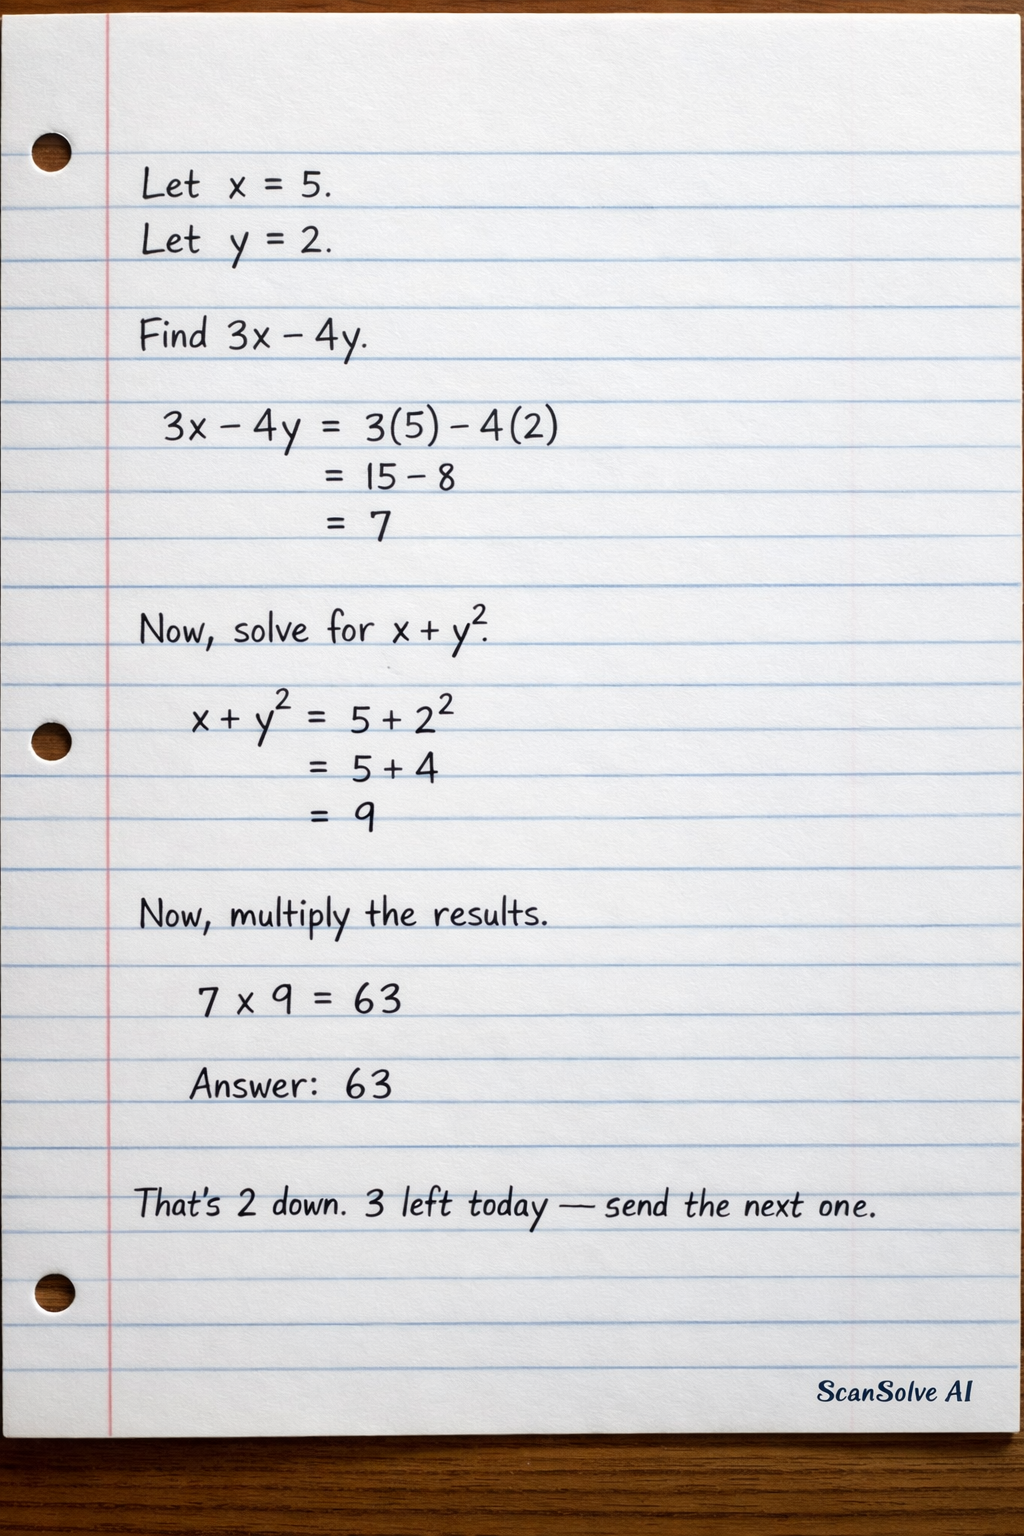 Let x = 5.
Let y = 2.
Find 3x − 4y.
3x − 4y = 3(5) − 4(2)
= 15 − 8
= 7
Now, solve for x + y².
x + y² = 5 + 2²
= 5 + 4
= 9
Now, multiply the results.
7 x 9 = 63
Answer: 63
That's 2 down. 3 left today — send the next one.
ScanSolve AI